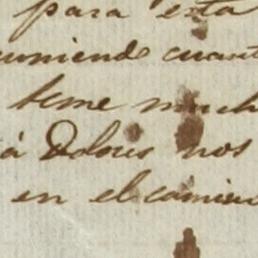 para esta
uniendo cuant
teme much
á Dolores nos
en el camino